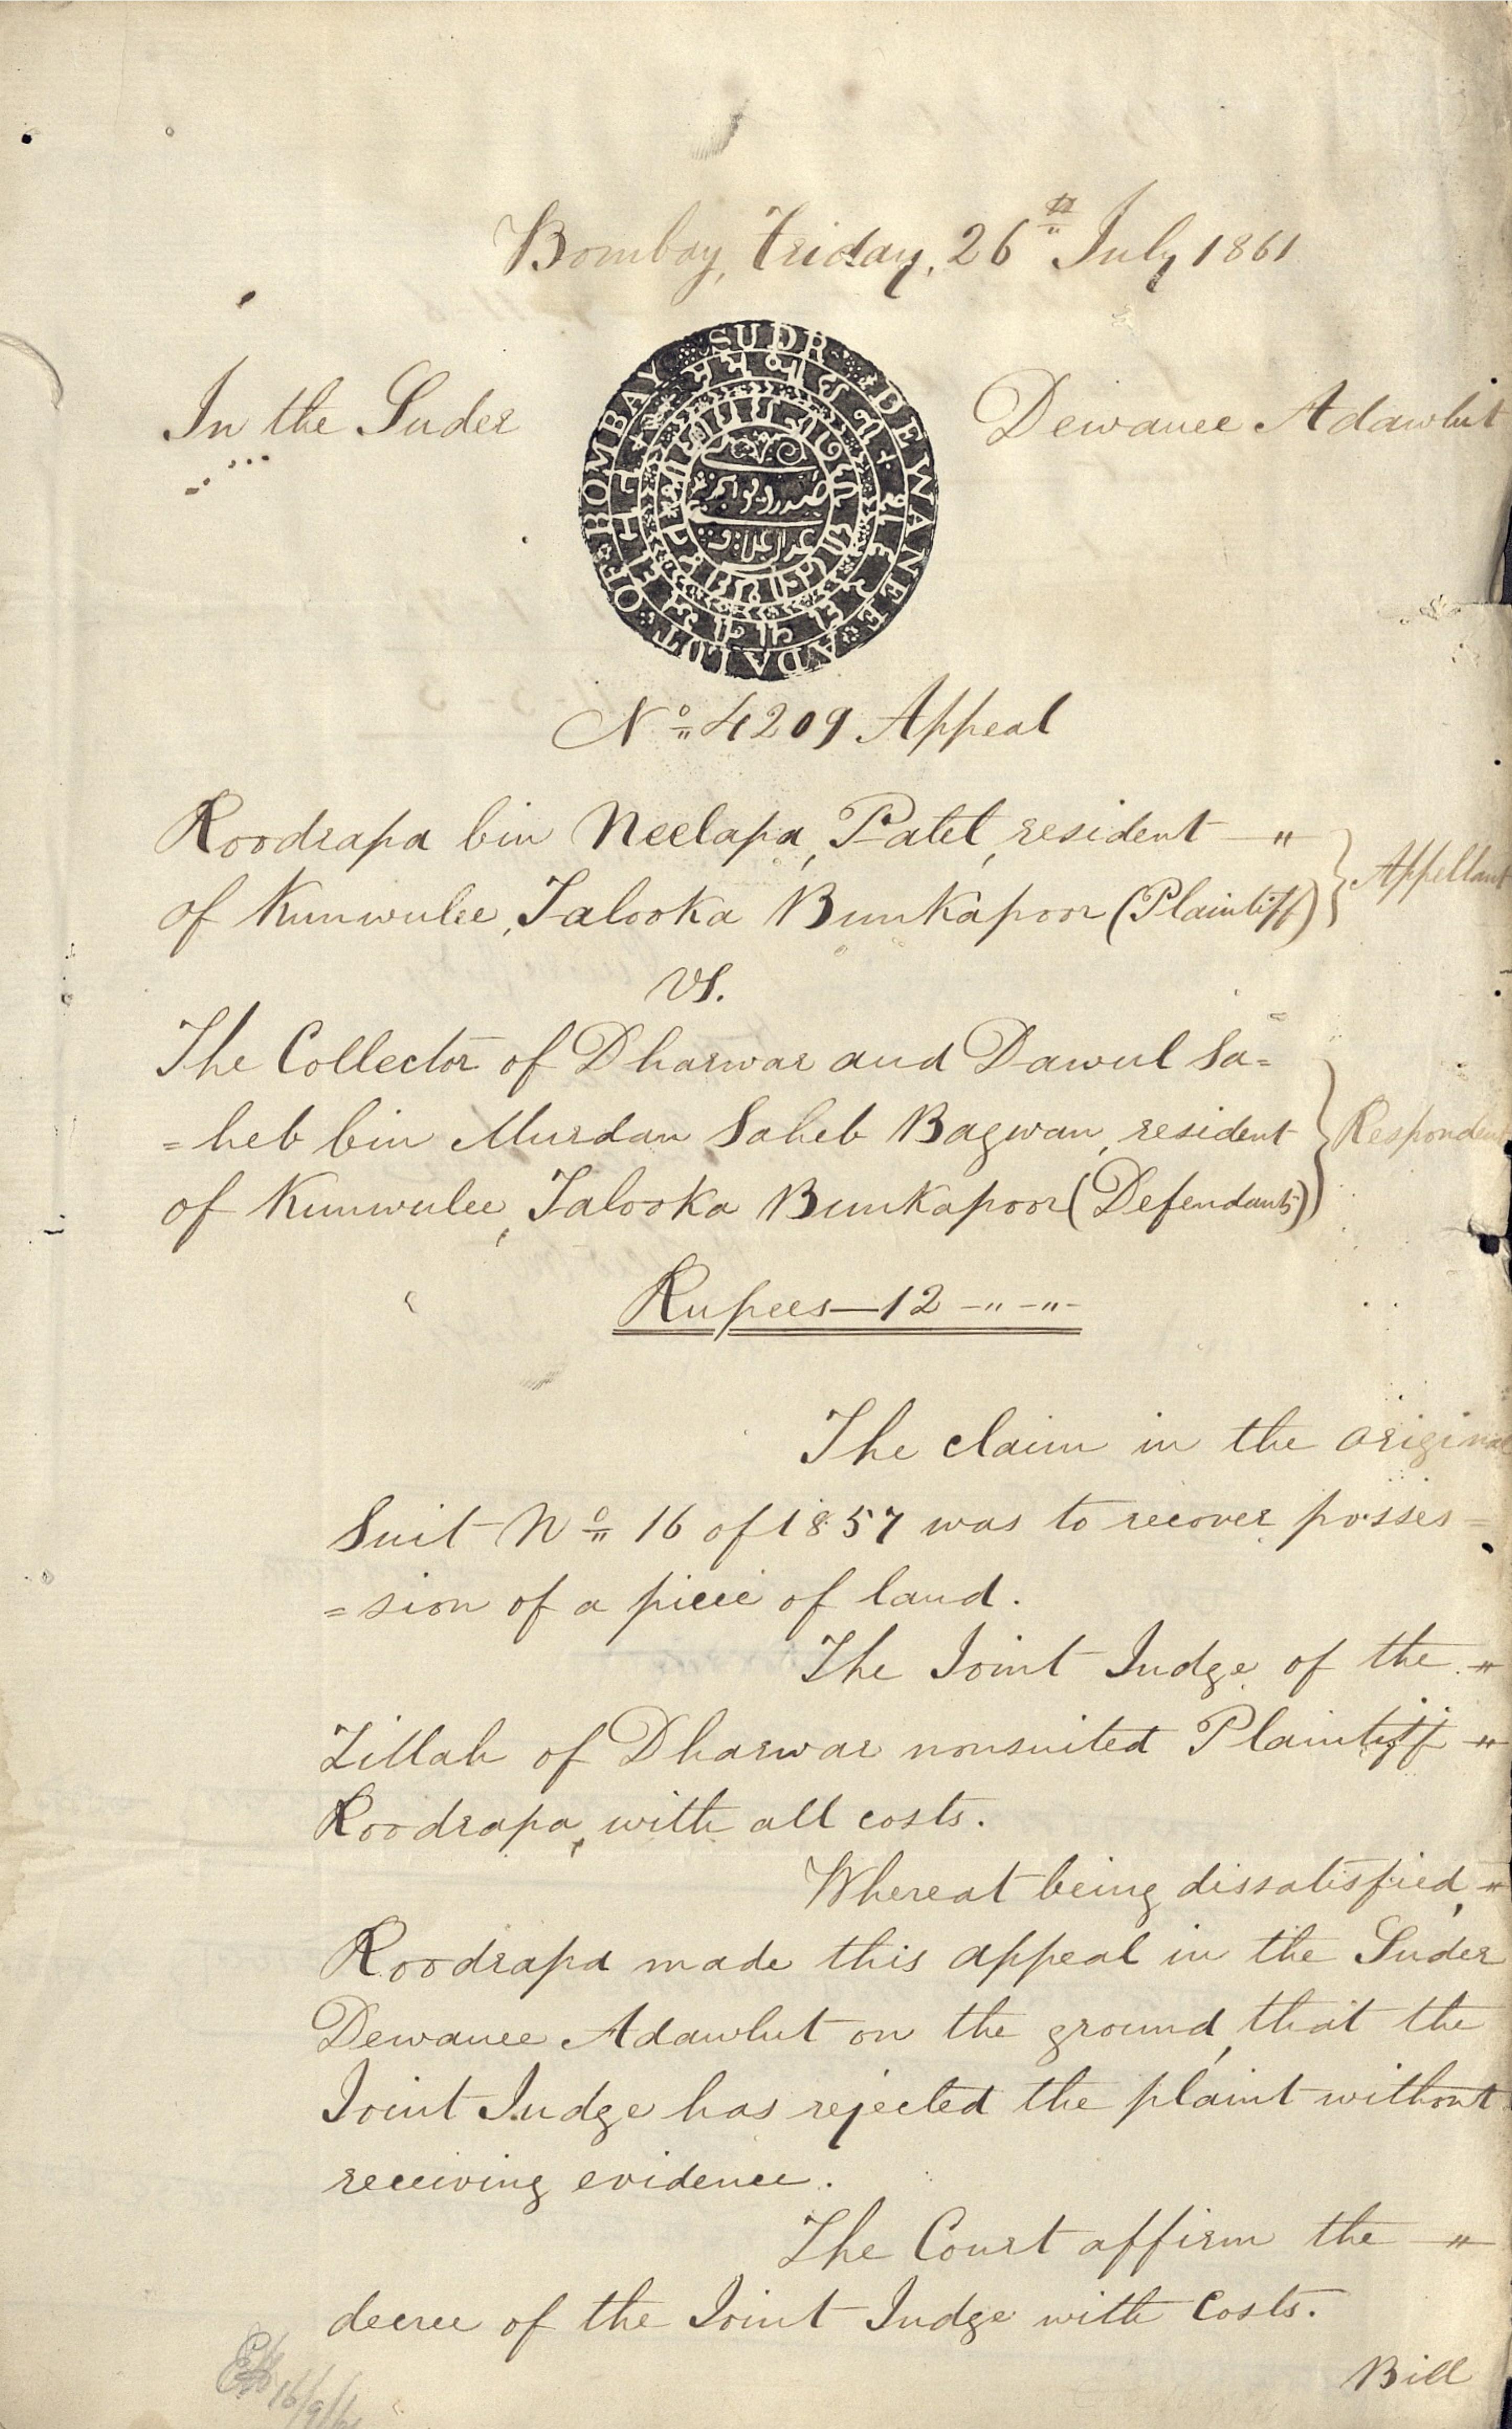 Bombay, Friday, 26th July 1861
In the Suder Dewanee Adawlut
SUDR DEWANEE ADALUT OF BOMBAY
No 4209 Appeal
Roodrapa bin Neelapa, Patel, resident —"
of Kunwulee, Talooka Bunkapoor (Plaintiff) } Appellant
vs.
The Collector of Dharwar and Dawul Sa=
=heb bin Murdan Saheb Bagwan, resident } Respondent
of Kunwulee, Talooka Bunkapoor (Defendants)
Rupees—12 -"-"-
The claim in the original
Suit No 16 of 1857 was to recover posses=
=sion of a piece of land.
The Joint Judge of the -"
Zillah of Dharwar nonsuited Plaintiff -"
Roodrapa, with all costs.
Whereat being dissatisfied, -"
Roodrapa made this appeal in the Suder
Dewanee Adawlut on the ground, that the
Joint Judge has rejected the plaint without
receiving evidence.
The Court affirm the —"
decree of the Joint Judge with Costs.
Bill